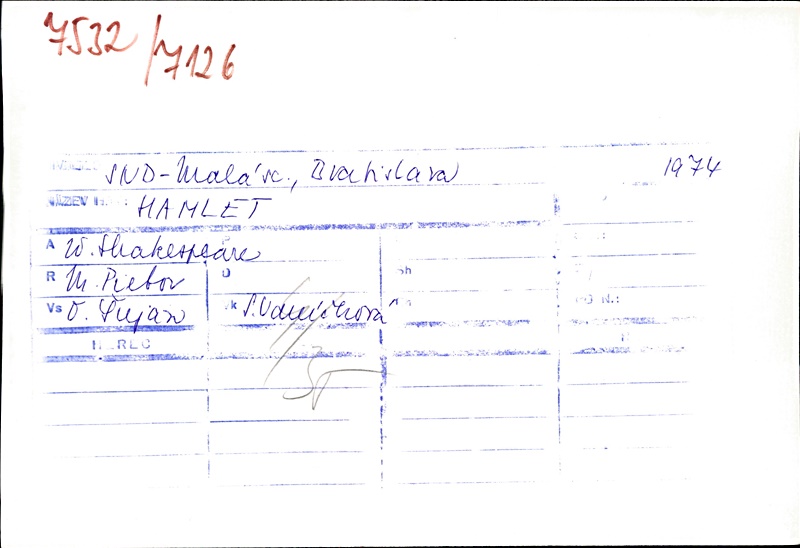 7532/7126
SND-Malá sc., Bratislava 1974
NÁZEV H. : HAMLET
A W. Shakespeare
R M. Pietor
Vs O. Šujan k S. Vaníčková
HEREC